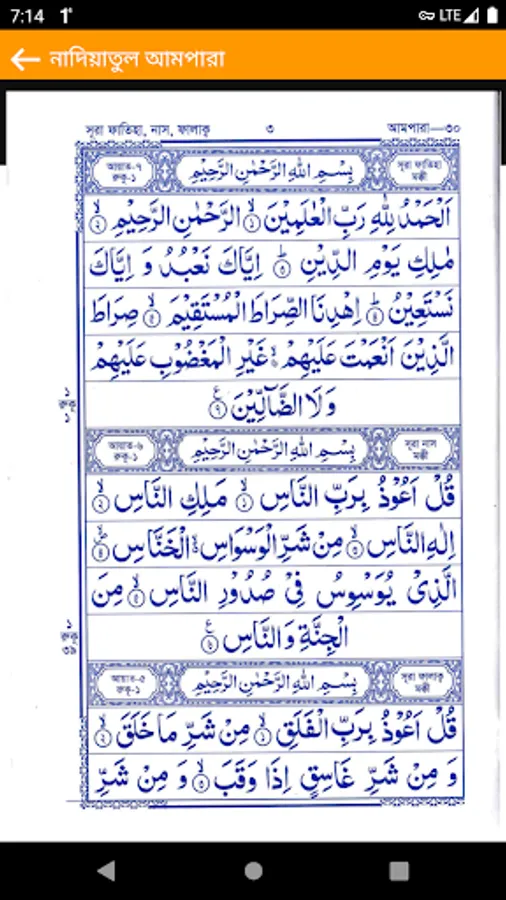 7:14 LTE
নাদিয়াতুল আমপারা
সূরা ফাতিহা, নাস, ফালাক্ব ৩ আমপারা—৩০
আয়াত-৭
রুকু-১
بِسْمِ اللهِ الرَّحْمٰنِ الرَّحِيْمِ
সূরা ফাতিহা
মক্কী
اَلْحَمْدُ لِلّٰهِ رَبِّ الْعٰلَمِيْنَ ۙ الرَّحْمٰنِ الرَّحِيْمِ ۙ
مٰلِكِ يَوْمِ الدِّيْنِ ؕ اِيَّاكَ نَعْبُدُ وَ اِيَّاكَ
نَسْتَعِيْنُ ؕ اِهْدِنَا الصِّرَاطَ الْمُسْتَقِيْمَ ۙ صِرَاطَ
الَّذِيْنَ اَنْعَمْتَ عَلَيْهِمْ غَيْرِ الْمَغْضُوْبِ عَلَيْهِمْ
وَلَا الضَّآلِّيْنَ
১
রুকু
১
আয়াত-৬
রুকু-১
بِسْمِ اللهِ الرَّحْمٰنِ الرَّحِيْمِ
সূরা নাস
মক্কী
قُلْ اَعُوْذُ بِرَبِّ النَّاسِ ۙ مَلِكِ النَّاسِ ۙ
اِلٰهِ النَّاسِ ۙ مِنْ شَرِّ الْوَسْوَاسِ الْخَنَّاسِ
الَّذِىْ يُوَسْوِسُ فِىْ صُدُوْرِ النَّاسِ ۙ مِنَ
الْجِنَّةِ وَالنَّاسِ
১
রুকু
৩৯
আয়াত-৫
রুকু-১
بِسْمِ اللهِ الرَّحْمٰنِ الرَّحِيْمِ
সূরা ফালাক্ব
মক্কী
قُلْ اَعُوْذُ بِرَبِّ الْفَلَقِ ۙ مِنْ شَرِّ مَا خَلَقَ ۙ
وَ مِنْ شَرِّ غَاسِقٍ اِذَا وَقَبَ ۙ وَ مِنْ شَرِّ